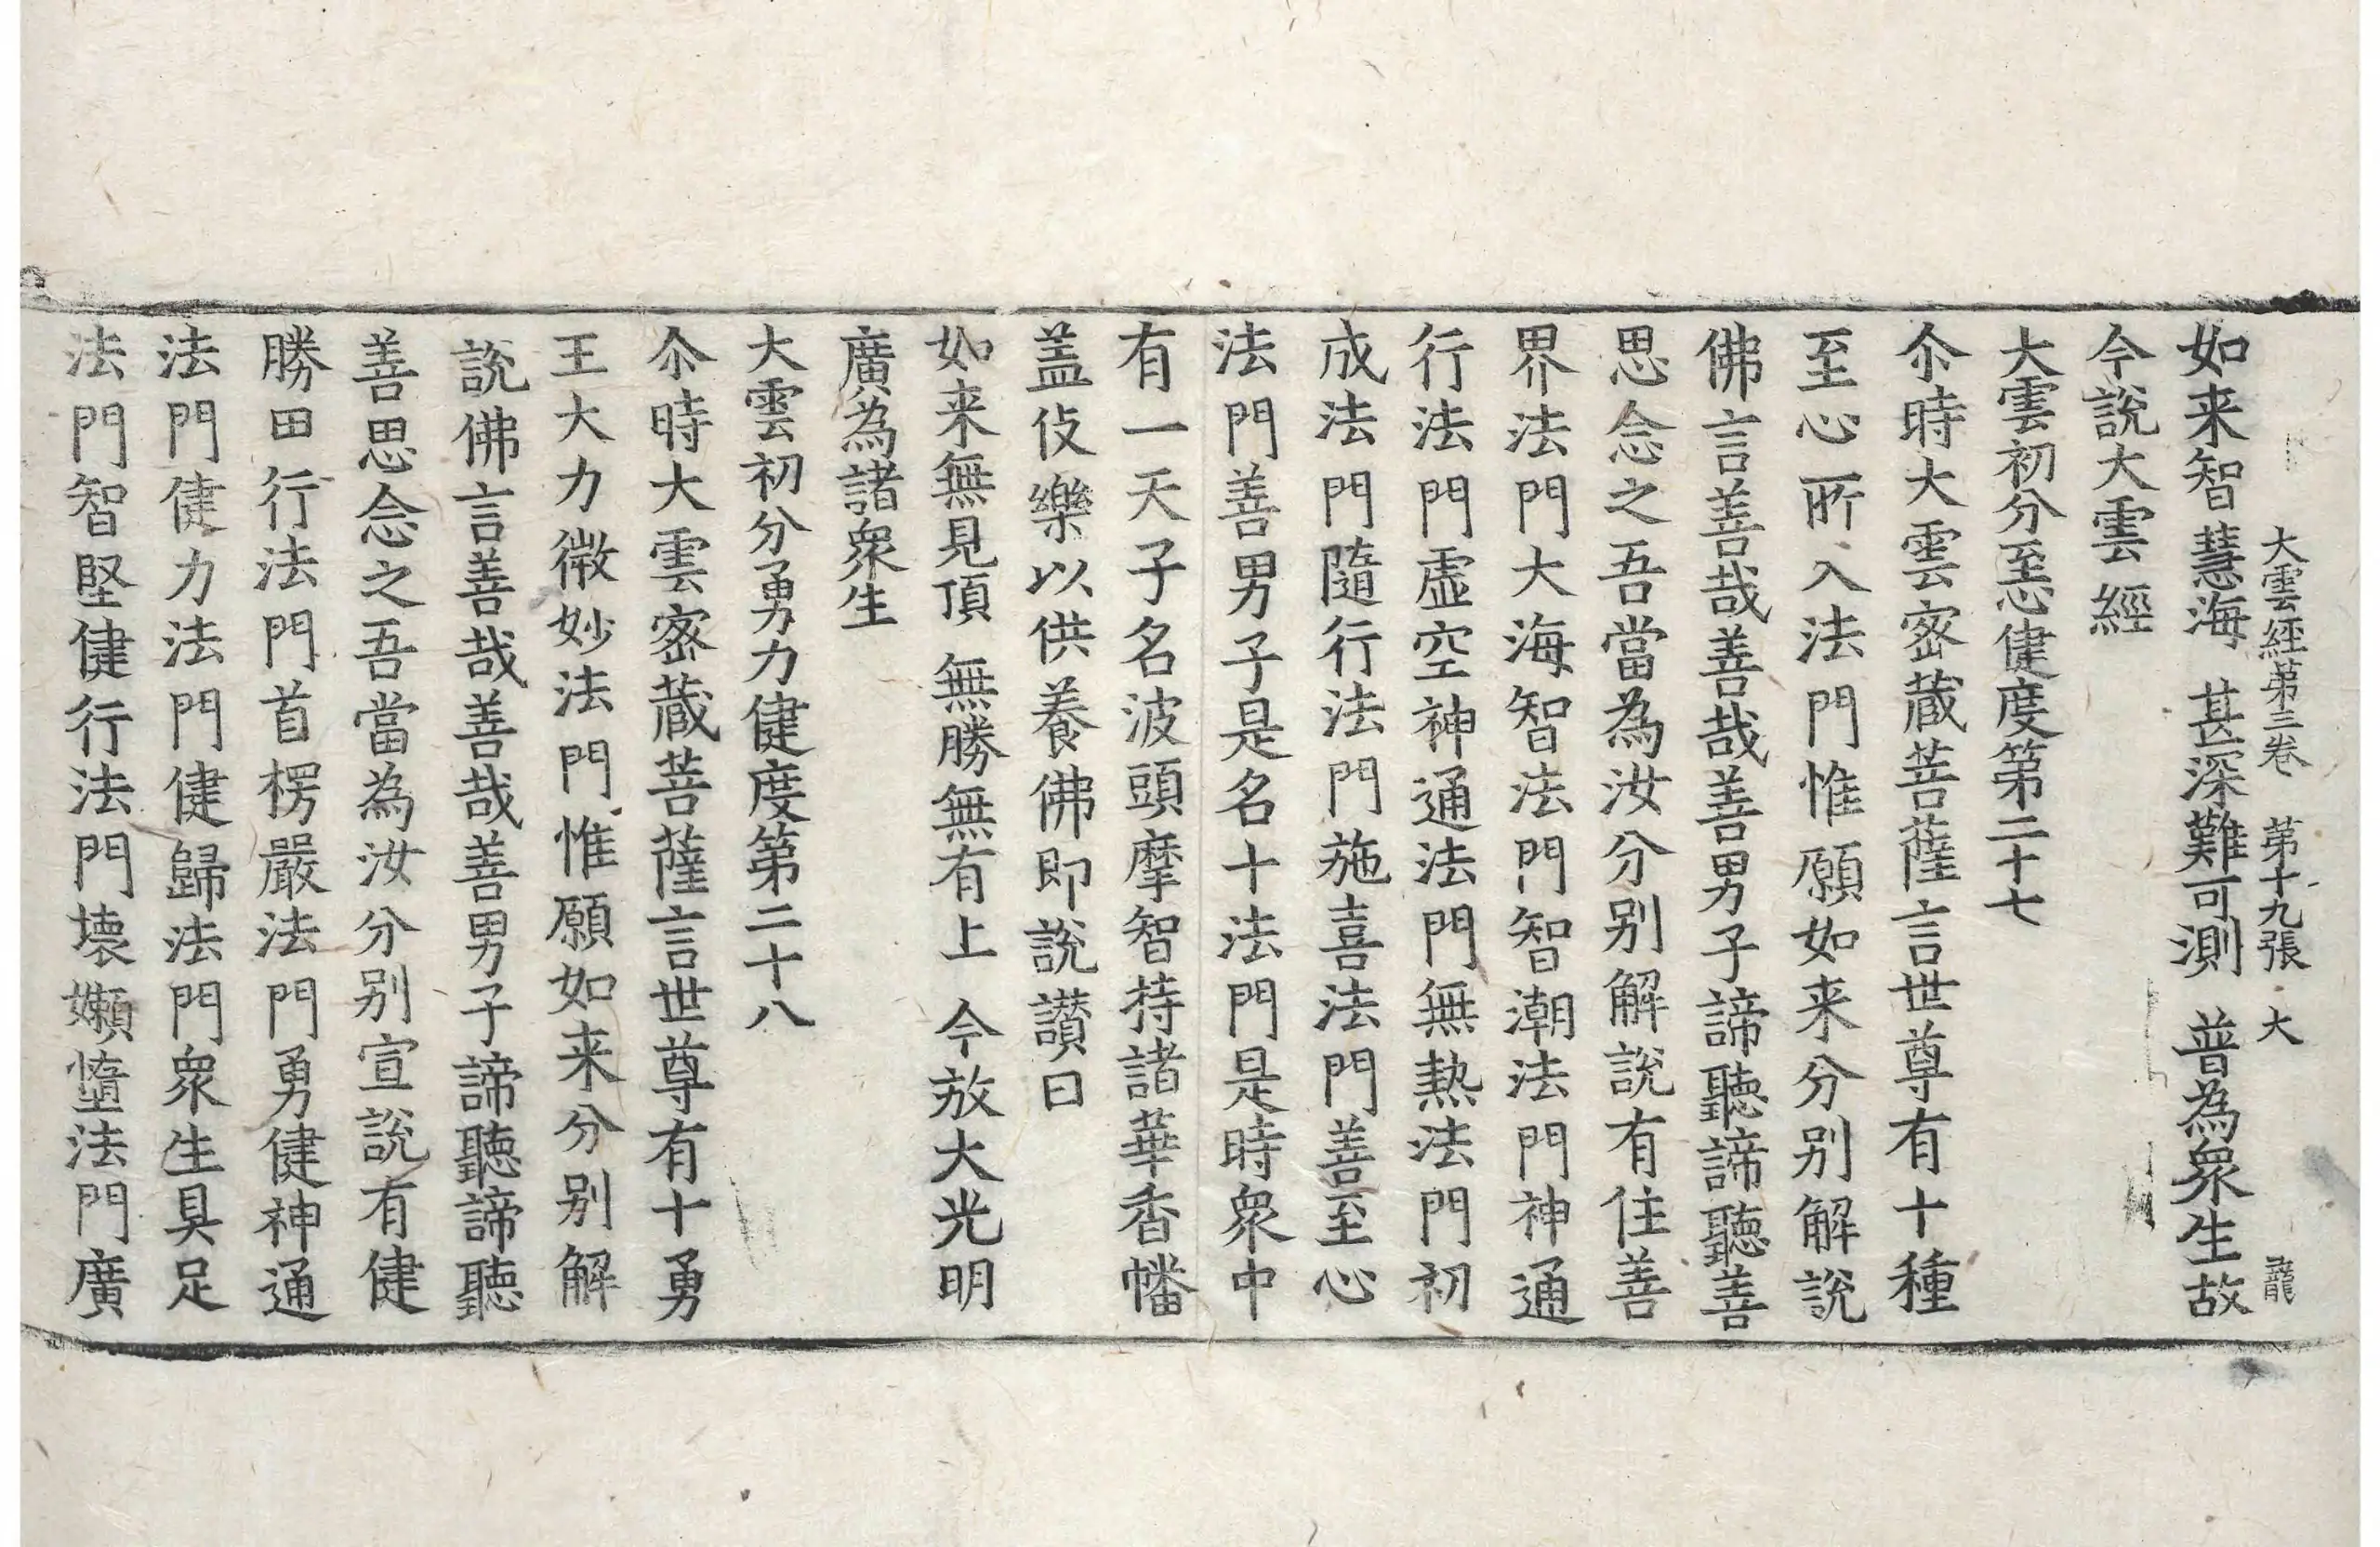 大雲經第三卷　第十九張　大　龍
如来智慧海　甚深難可測　普為衆生故
今說大雲經
大雲初分至心健度第二十七
尒時大雲密藏菩薩言世尊有十種
至心所入法門惟願如来分别解說
佛言善哉善哉善男子諦聽諦聽善
思念之吾當為汝分别解說有住善
界法門大海智法門智潮法門神通
行法門虛空神通法門無熱法門初
成法門隨行法門施喜法門善至心
法門善男子是名十法門是時衆中
有一天子名波頭摩智持諸華香幡
盖伎樂以供養佛即說讃曰
如来無見頂　無勝無有上　今放大光明
廣為諸衆生
大雲初分勇力健度第二十八
尒時大雲密藏菩薩言世尊有十勇
王大力微妙法門惟願如来分别解
說佛言善哉善哉善男子諦聽諦聽
善思念之吾當為汝分别宣說有健
勝田行法門首楞嚴法門勇健神通
法門健力法門健歸法門衆生具足
法門智堅健行法門壊嬾憜法門廣